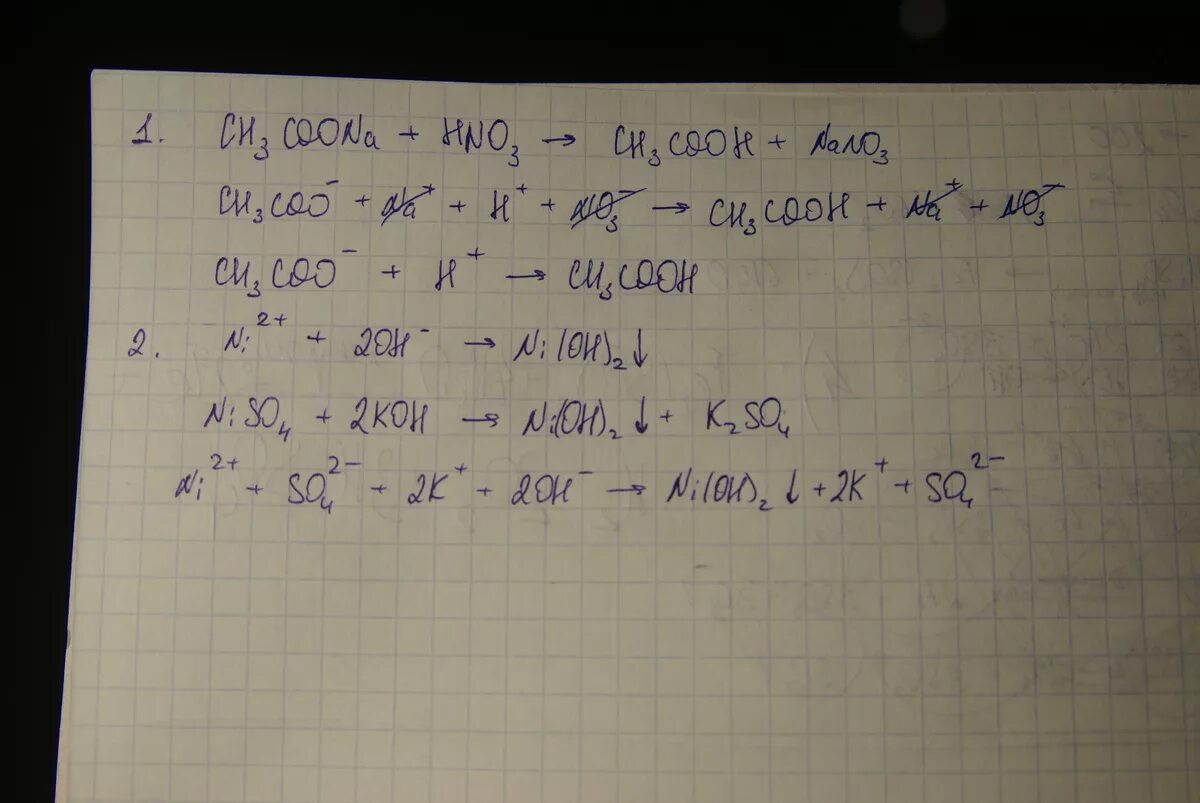 1. CH₃COONa + HNO₃ → CH₃COOH + NaNO₃
CH₃COO⁻ + Na⁺ + H⁺ + NO₃⁻ → CH₃COOH + Na⁺ + NO₃⁻
CH₃COO⁻ + H⁺ → CH₃COOH
2. Ni²⁺ + 2OH⁻ → Ni(OH)₂↓
NiSO₄ + 2KOH → Ni(OH)₂↓ + K₂SO₄
Ni²⁺ + SO₄²⁻ + 2K⁺ + 2OH⁻ → Ni(OH)₂↓ + 2K⁺ + SO₄²⁻